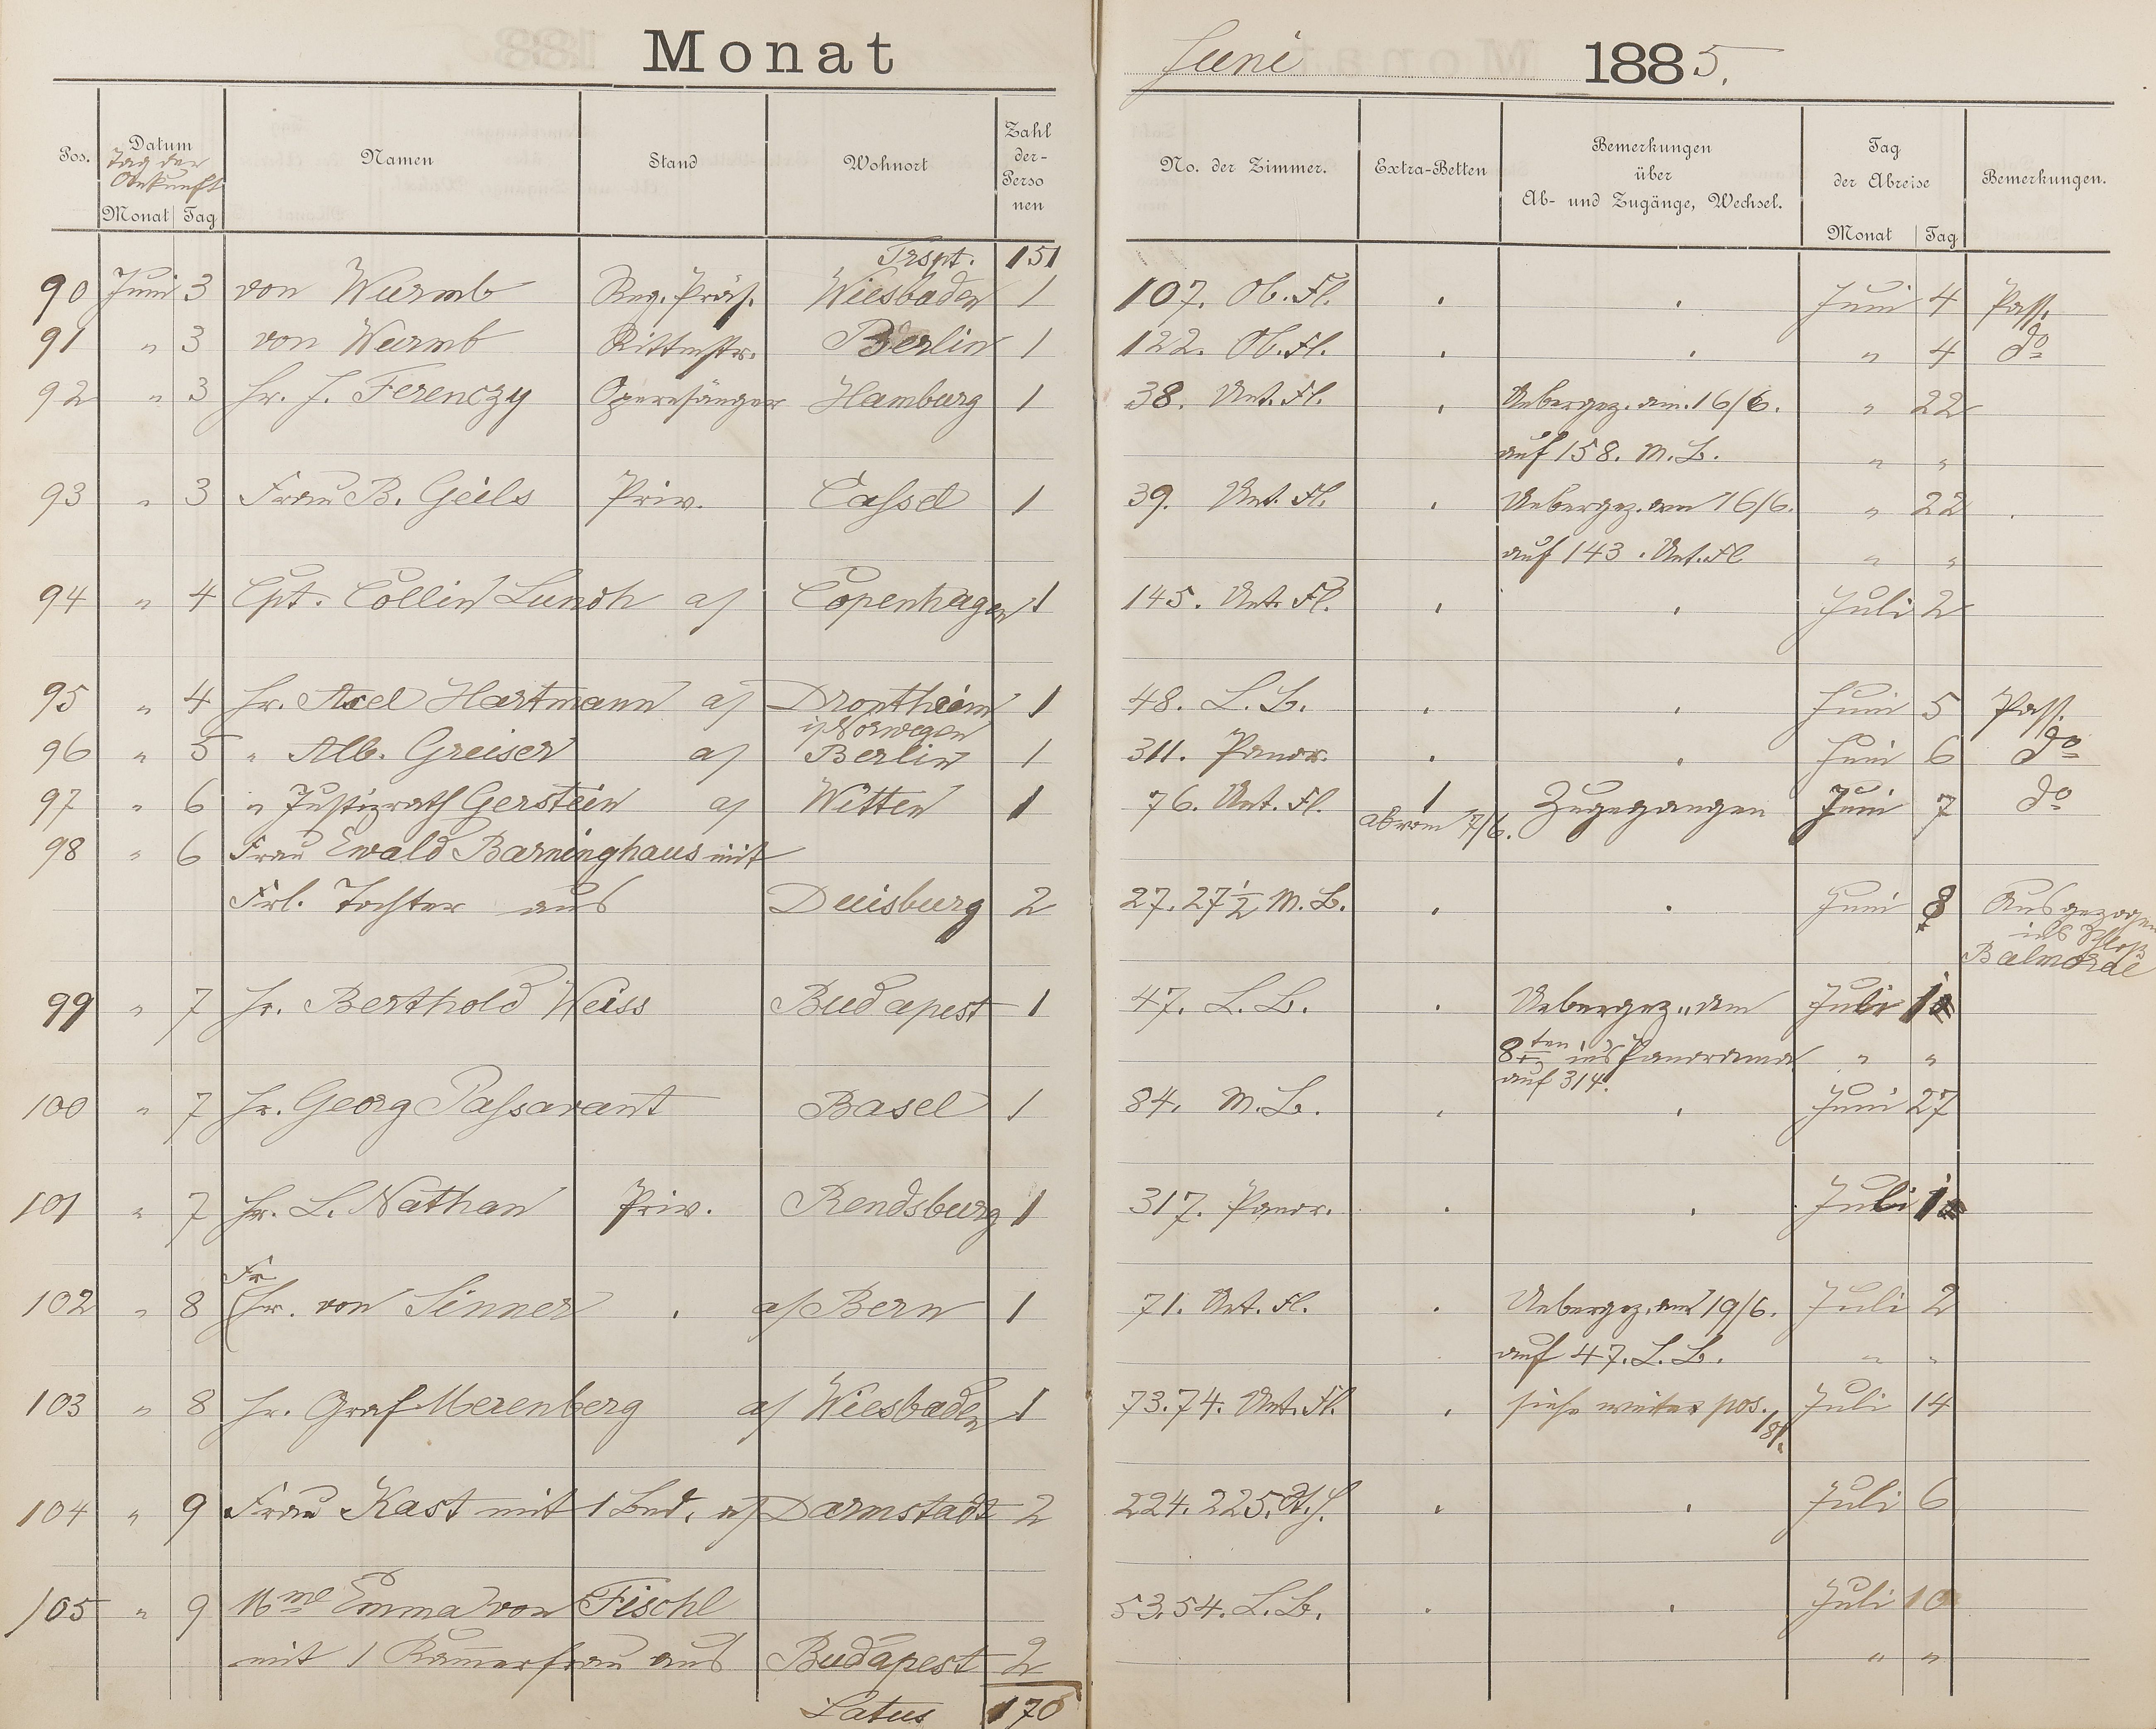 Monat Juni 1885.
Pos. Datum Namen Stand Wohnort Zahl der Personen No. der Zimmer. Extra-Betten Bemerkungen über Ab- und Zugänge, Wechsel. Tag der Abreise Bemerkungen.
Tag der Ankunft
Monat Tag Monat Tag
Trspt. 151
90 Juni 3 von Wurmb Reg. Präs. Wiesbaden 1 107. Ob. Fl. . . Juni 4 Pass.
91 " 3 von Wurmb Rittmstr. Berlin 1 122. Ob. Fl. . . " 4 do
92 " 3 Hr. J. Ferenczy Opernsänger Hamburg 1 38. Unt. Fl. . Uebergez. am 16/6. " 22
auf 158. M. B. " "
93 " 3 Frau B. Geils Priv. Cassel 1 39. Unt. Fl. . Uebergez. am 16/6. " 22
auf 143. Unt. Fl " "
94 " 4 Cpt. Collin Lundh a/ Copenhagen 1 145. Unt. Fl. . . Juli 2
95 " 4 Hr. Axel Hartmann a/ Drontheim 1 48. L. B. . . Juni 5 Pass.
i/ Norwegen
96 " 5 " Alb. Greiser a/ Berlin 1 311. Panor. . . Juni 6 do
97 " 6 " Justizrath Gerstein a/ Witten 1 76. Unt. Fl. 1 Zugegangen Juni 7 do
ab vom 7/6.
98 " 6 Frau Ewald Barninghaus mit
Frl. Tochter aus Duisburg 2 27. 27½ M. B. . . Juni 8 Ausgezogen
ins Schloß
Balmoral
99 " 7 Hr. Berthold Weiss Budapest 1 47. L. B. . Uebergez. am Juli 1
8ten ins Panorama " "
auf 314.
100 " 7 Hr. Georg Passavant Basel 1 84. M. B. . . Juni 27
101 " 7 Hr. L. Nathan Priv. Rendsburg 1 317. Panor. . . Juli 1
Fr
102 " 8 Hr. von Sinner . a/ Bern 1 71. Unt. Fl. . Uebergez. am 19/6. Juli 2
auf 47. L. B. " "
103 " 8 Hr. Graf Merenberg a/ Wiesbaden 1 73. 74. Unt. Fl. . siehe weiter pos. 181. Juli 14
104 " 9 Frau Kast mit 1 Bed. a/ Darmstadt 2 224. 225. . . Juli 6
105 " 9 Mme Emma von Fischl 53. 54. L. B. . . Juli 10
mit 1 Kam̄erfrau aus Budapest 2 " "
Latus 170